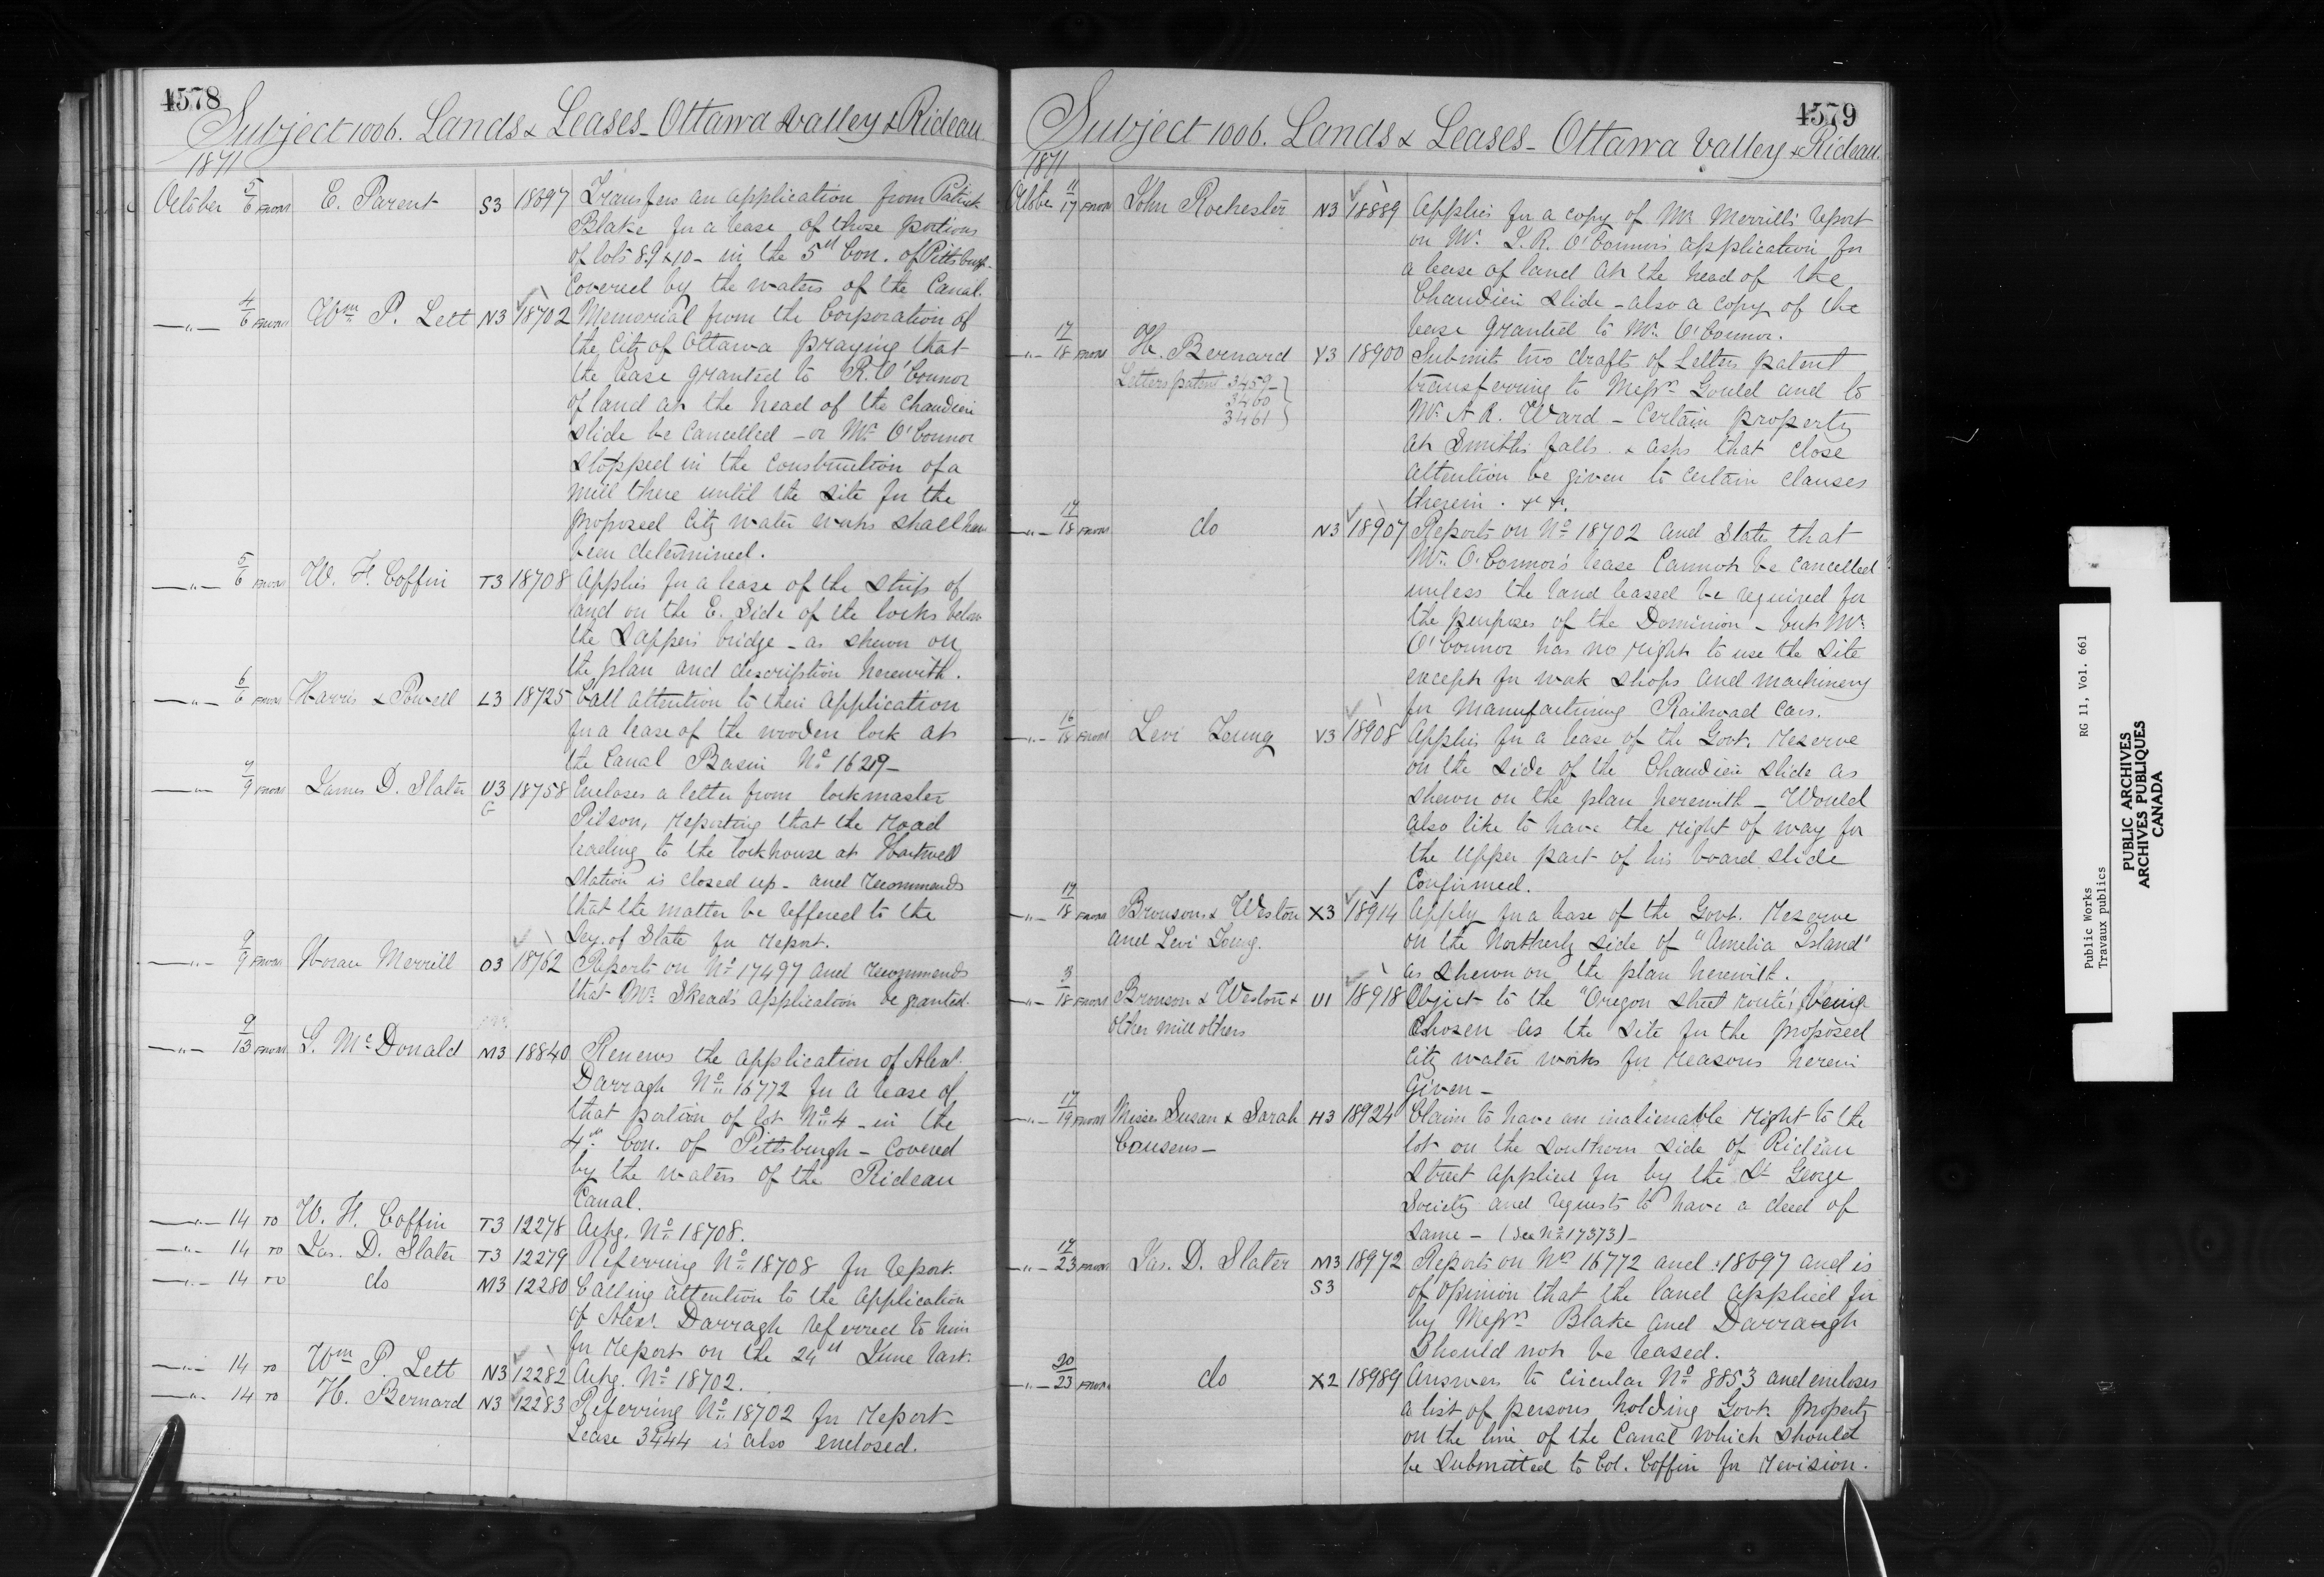 4578
Subject 1006. Lands & Leases - Ottawa Valley & Rideau
1871
October 5/6 FROM E. Parent S3 18697 Transfers an application from Patrick
Blake for a lease of those portions
of lots 8.9 & 10 - in the 5th Con. of Pittsburgh
Covered by the waters of the Canal.
—"— 4/6 FROM Wm P. Lett N3 18702 Memorial from the Corporation of
the City of Ottawa praying that
the lease granted to R. O'Connor
of land at the head of the Chaudiere
Slide be cancelled - or Mr. O'Connor
stopped in the construction of a
mill there until the site for the
proposed City water works shall have
been determined.
—"— 5/6 FROM W. F. Coffin T3 18708 Applies for a lease of the strip of
land on the E. Side of the locks below
the Sappers bridge - as shewn on
the plan and description herewith.
—"— 6/6 FROM Harris & Powell L3 18725 Call attention to their application
for a lease of the wooden lock at
the Canal Basin No 16219 -
—"— 7/9 FROM James D. Slater U3 18758 Encloses a letter from lockmaster
G
Pilson, reporting that the road
leading to the lockhouse at Hartwell
Station is closed up - and recommends
that the matter be reffered to the
Sey. of State for report.
—"— 9/9 FROM Horace Merrill O3 18762 Reports on No 17497 and recommends
that Mr. Skead's application be granted.
—"— 9/13 FROM G. McDonald M3 18840 Renews the application of Alexr.
Darragh No 16772 for a lease of
that portion of lot No 4 - in the
4th Con. of Pittsburgh - Covered
by the waters of the Rideau
Canal.
—"— 14 TO W. F. Coffin T3 12278 Ackg. No 18708.
—"— 14 TO Jas. D. Slater T3 12279 Referring No 18708 for report.
—"— 14 TO do M3 12280 Calling attention to the application
of Alexr. Darragh referred to him
for report on the 24th June last.
—"— 14 TO Wm P. Lett N3 12282 Ackg. No 18702.
—"— 14 TO H. Bernard N3 12283 Referring No 18702 for report -
Lease 3444 is also enclosed.
4579
Subject 1006. Lands & Leases - Ottawa Valley & Rideau
1871
Octobe 11/17 FROM John Rochester N3 18889 Applies for a copy of Mr Merrill's report
on Mr. L. R. O'Connor's application for
a lease of land at the head of the
Chaudiere Slide - also a copy of the
lease granted to Mr. O'Connor.
—"— 17/18 FROM H. Bernard Y3 18900 Submits two drafts of Letters patent
Letters patent 3459 -
3460
3461
transferring to Messrs Gould and to
Mr. A R. Ward - Certain property
at Smiths falls. & asks that close
attention be given to certain clauses
therein. &c &c.
—"— 17/18 FROM do N3 18907 Reports on No 18702 and states that
Mr. O'Connor's lease cannot be cancelled
unless the land leased be required for
the purposes of the Dominion - but Mr.
O'Connor has no right to use the site
except for work shops and machinery
for manufacturing Railroad Cars.
—"— 16/18 FROM Levi Young V3 18908 Applies for a lease of the Govt. reserve
on the side of the Chaudiere slide as
shewn on the plan herewith - Would
also like to have the right of way for
the upper part of his board slide
Confirmed.
—"— 17/18 FROM Bronsons & Weston X3 18914 Apply for a lease of the Govt. Reserve
and Levi Young.
on the Northerly side of "Amelia Island"
as shewn on the plan herewith.
—"— 3/18 FROM Bronson & Weston & U1 18918 Object to the "Oregon street route" being
other mill others
Chosen as the site for the proposed
City water works for reasons herein
given -
—"— 17/19 FROM Misses Susan & Sarah H3 18924 Claim to have an inalienable right to the
Cousens -
lot on the southern side of Rideau
Street applied for by the St George
Society and requests to have a deed of
same - (See No 17373) -
—"— 17/23 FROM Jas. D. Slater M3 18972 Reports on Nos 16772 and 18697 and is
S3
of opinion that the land applied for
by Messrs Blake and Darraugh
Should not be leased.
—"— 20/23 FROM do X2 18989 Answers to Circular No 8853 and encloses
a list of persons holding Govt. property
on the line of the Canal which should
be submitted to Col. Coffin for revision.
Public Works RG 11, Vol. 661
Travaux publics
PUBLIC ARCHIVES
ARCHIVES PUBLIQUES
CANADA